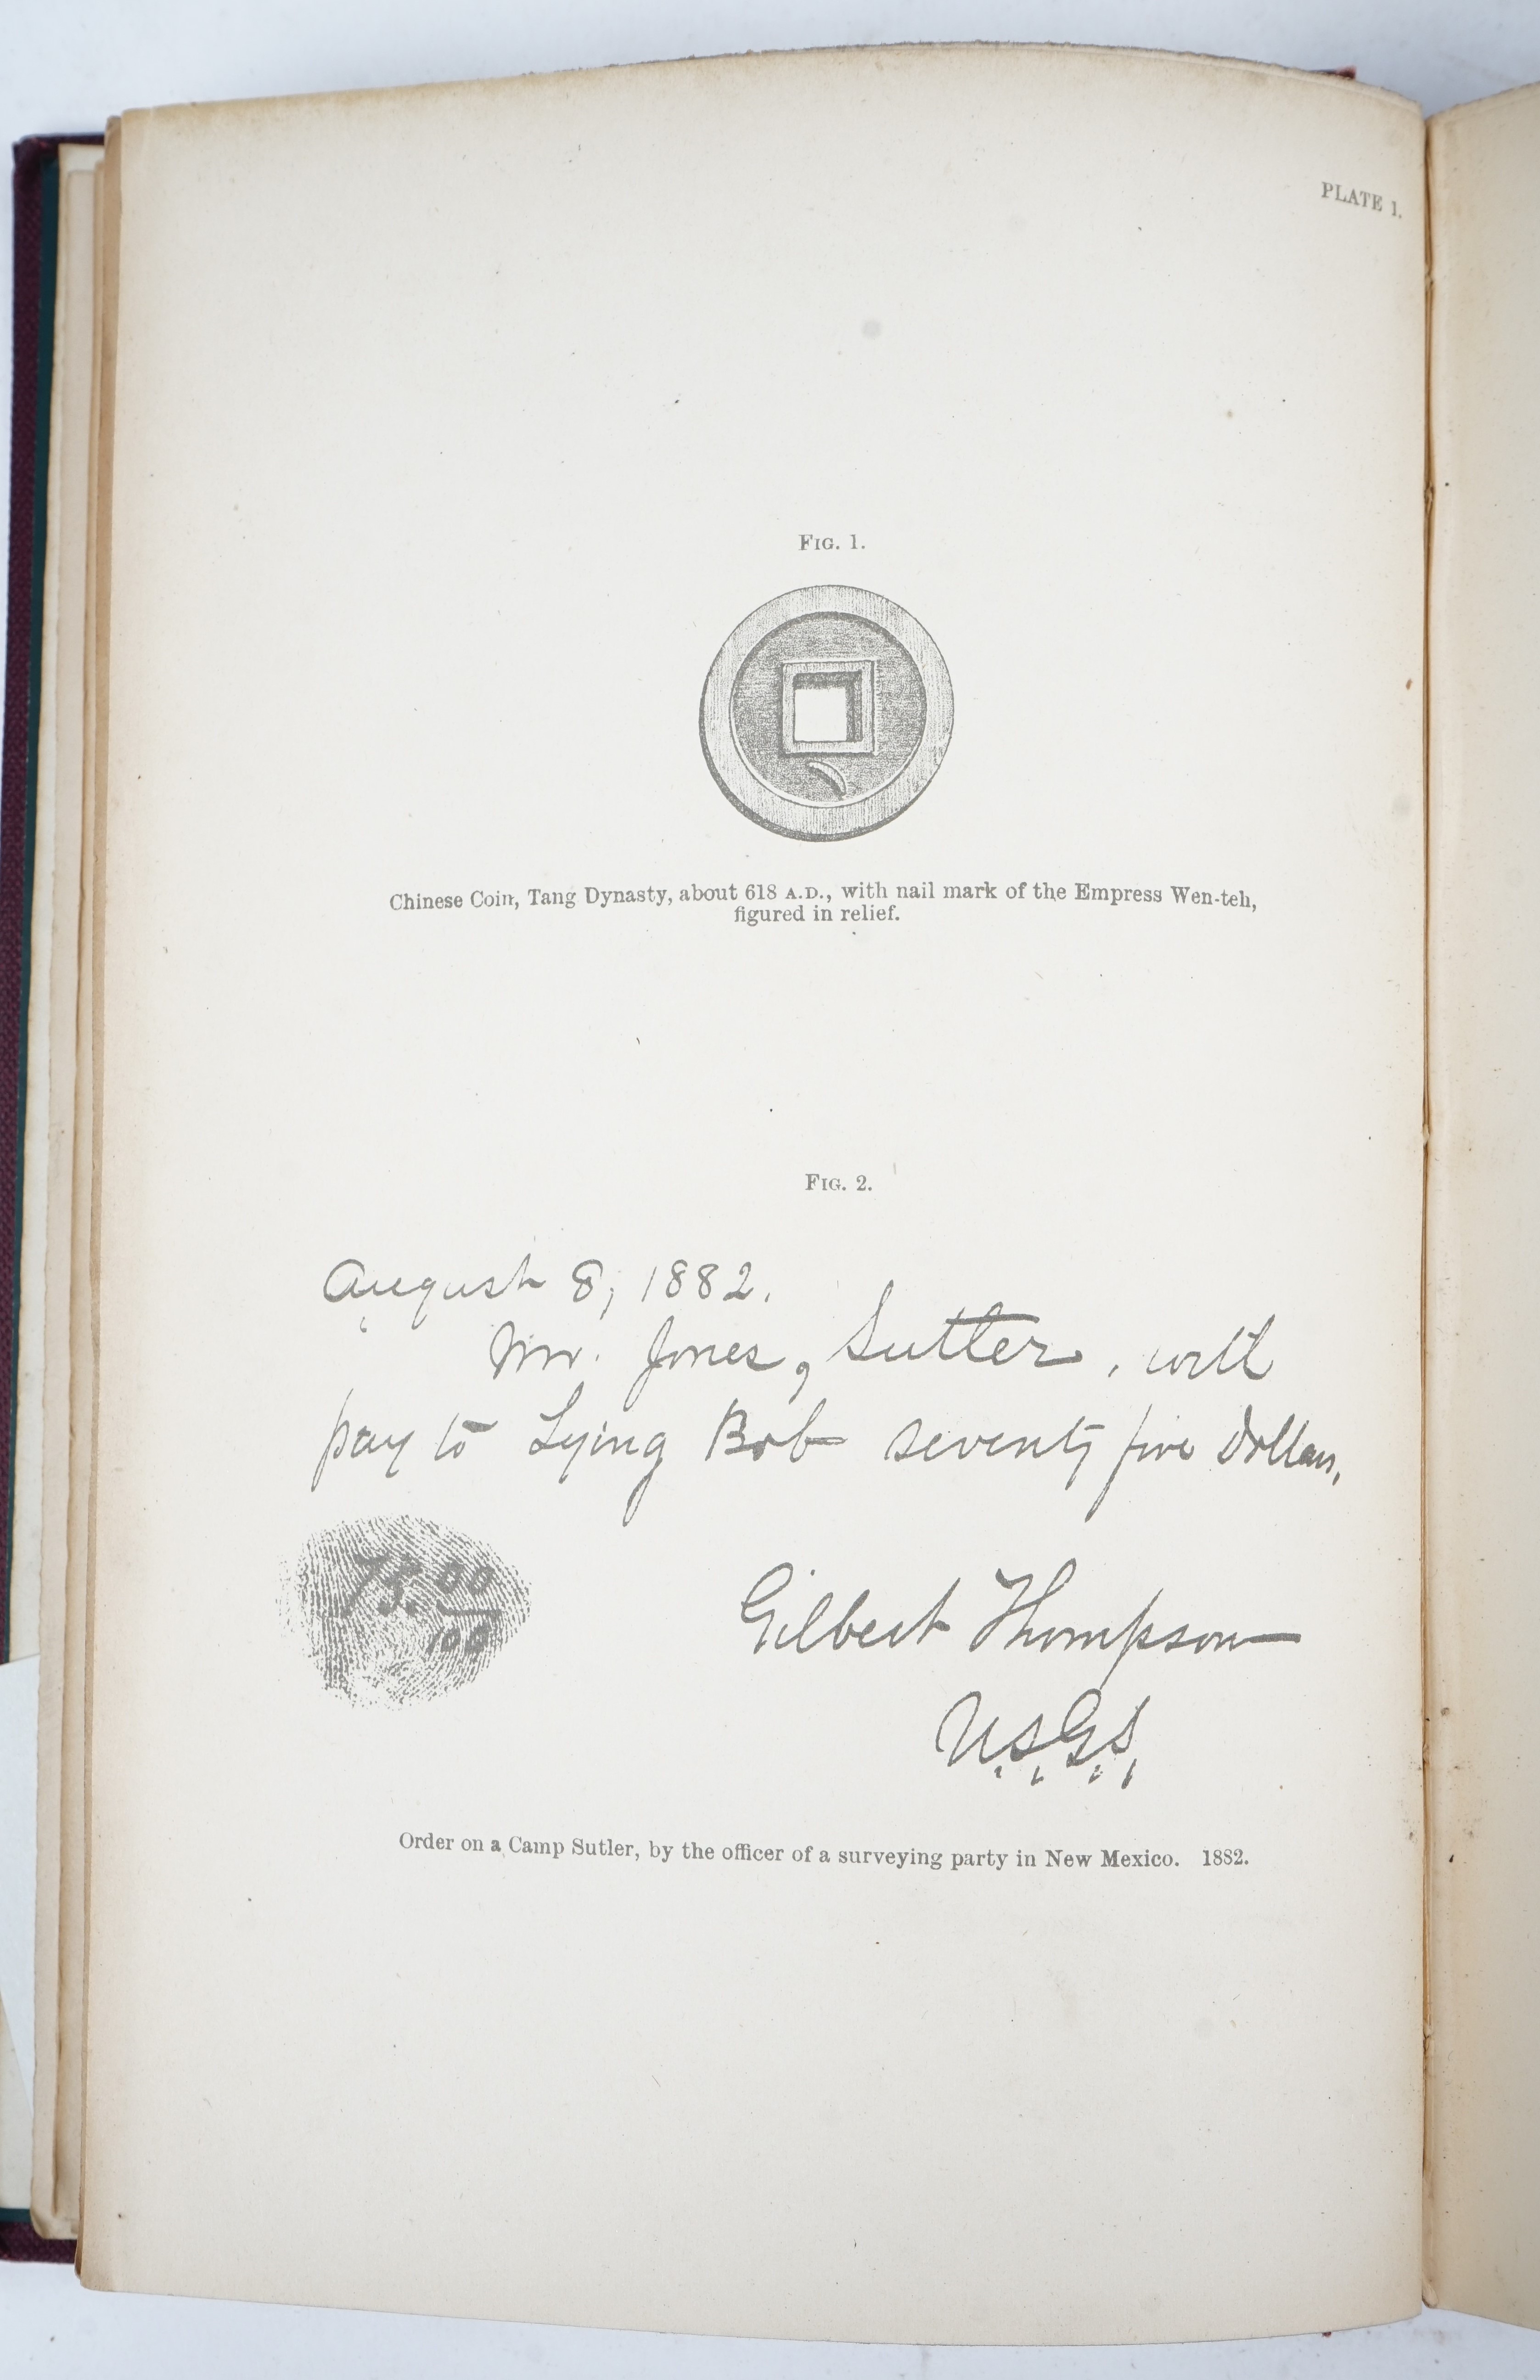 PLATE 1.
FIG. 1.
Chinese Coin, Tang Dynasty, about 618 A.D., with nail mark of the Empress Wen-teh,
figured in relief.
FIG. 2.
August 8, 1882.
Mr. Jones, Sutler, will
pay to Lying Bob seventy five dollars.
75.00/100
Gilbert Thompson
U.S.G.S.
Order on a Camp Sutler, by the officer of a surveying party in New Mexico. 1882.